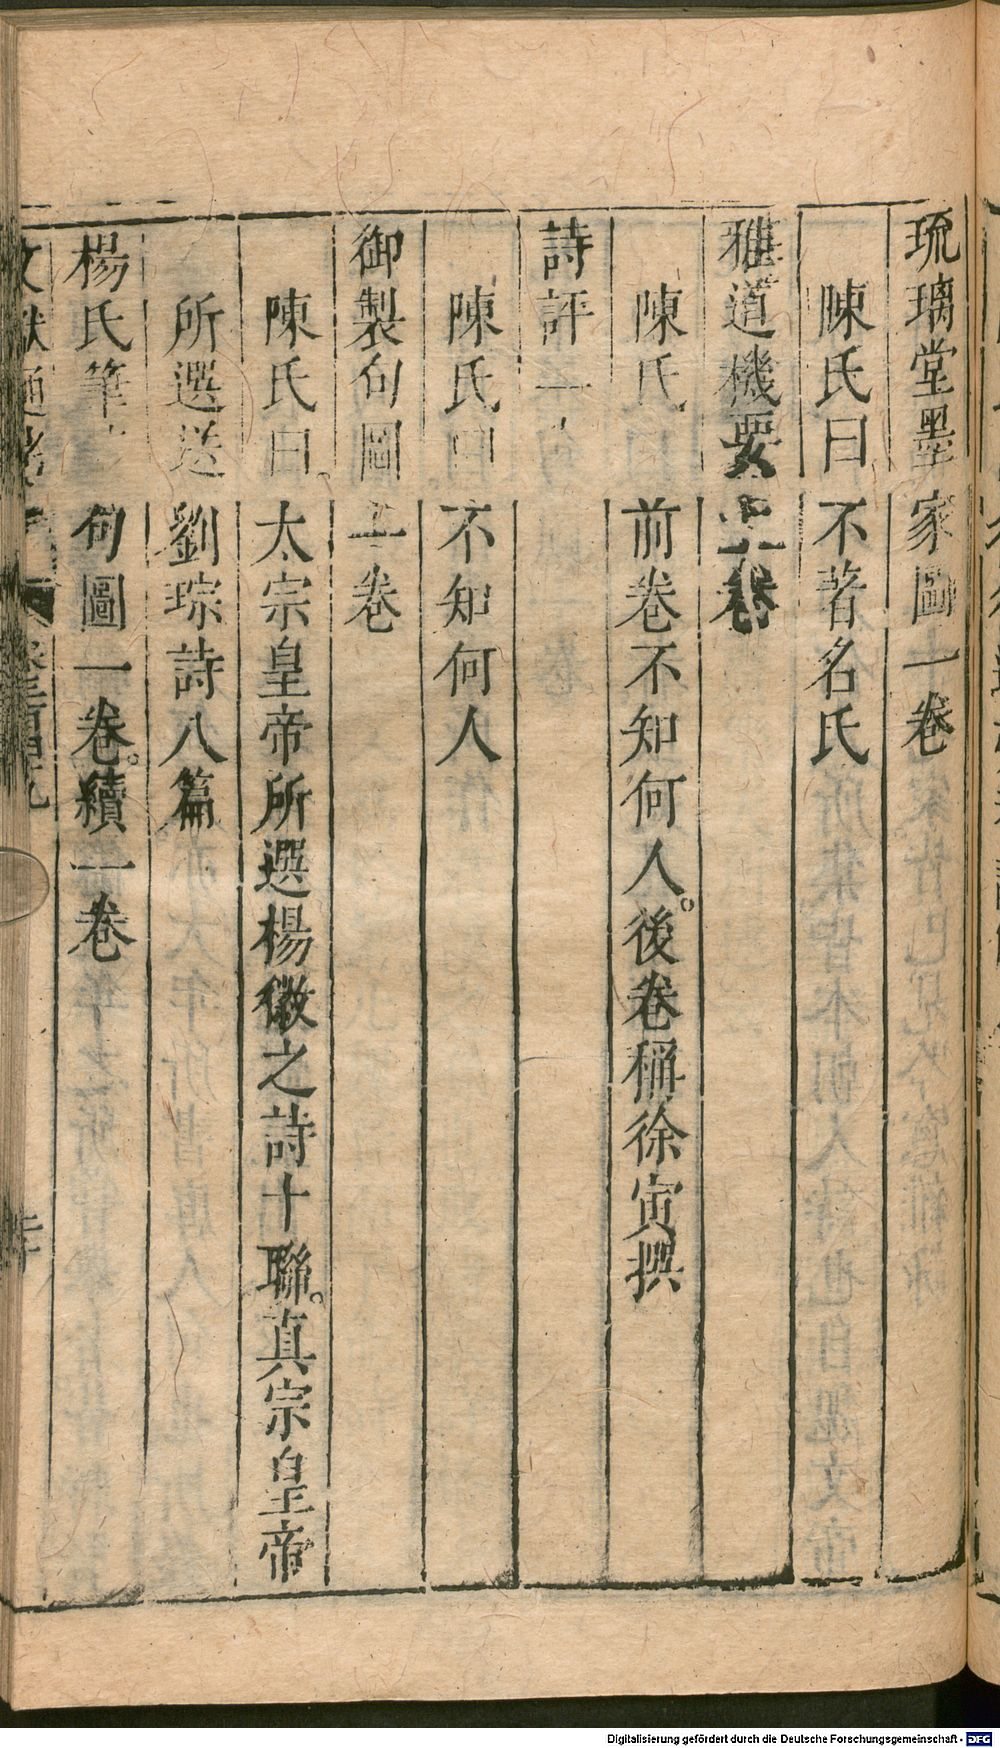 琉璃堂墨家圖一卷
陳氏曰不著名氏
雅道機要二卷
陳氏曰前卷不知何人後卷稱徐寅撰
詩評一
陳氏曰不知何人
御製句圖一卷
陳氏曰太宗皇帝所選楊徽之詩十聯真宗皇帝
所選送劉琮詩八篇
楊氏筆句圖一卷續一卷
Digitalisierung gefördert durch die Deutsche Forschungsgemeinschaft - DFG